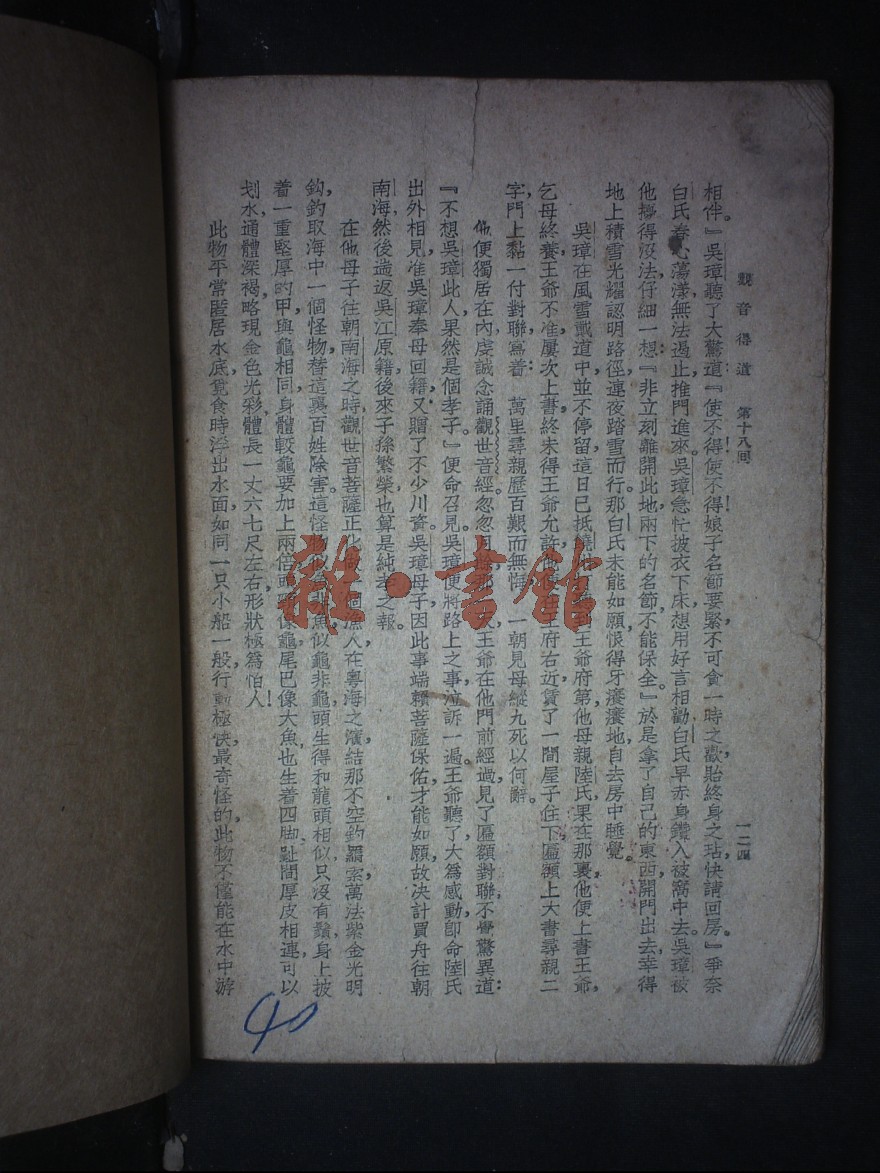 觀音得道　第十八回　一二四
相伴。』吳璋聽了大驚道：『使不得！使不得！娘子名節要緊，不可貪一時之歡，貽終身之玷，快請回房。』爭奈
白氏春心蕩漾，無法遏止，推門進來。吳璋急忙披衣下床，想用好言相勸，白氏早赤身鑽入被窩中去。吳璋被
他攪得沒法，仔細一想：『非立刻離開此地，兩下的名節，不能保全。』於是拿了自己的東西，開門出去，幸得
地上積雪光耀，認明路徑，連夜踏雪而行。那白氏未能如願，恨得牙癢癢地，自去房中睡覺。
吳璋在風雪載道中，並不停留，這日已抵
到王爺府第，他母親陸氏果在那裏，他便上書王爺，
乞母終養，王爺不准，屢次上書，終未得王爺允許，他
王府右近，賃了一間屋子住下，匾額上大書尋親二
字，門上黏一付對聯，寫着：　萬里尋親，歷百艱而無悔；　一朝見母，縱九死以何辭。
他便獨居在內，虔誠念誦觀世音經。忽忽月餘，那一天王爺在他門前經過，見了匾額對聯，不覺驚異道：
『不想吳璋此人，果然是個孝子。』便命召見，吳璋便將路上之事，泣訴一遍。王爺聽了，大為感動，卽命陸氏
出外相見，准吳璋奉母回籍，又贈了不少川資。吳璋母子，因此事端賴菩薩保佑，才能如願，故決計買舟往朝
南海，然後遄返吳江原籍，後來子孫繁榮，也算是純孝之報。
在他母子往朝南海之時，觀世音菩薩正化做一個漁人，在粵海之濱，結那不空釣羂索，萬法紫金光明
鈎，釣取海中一個怪物，替這裏百姓除害。這怪物似魚非魚，似龜非龜，頭生得和龍頭相似，只沒有鬚，身上披
着一重堅厚的甲，與龜相同，身體較龜要加上兩倍
像龜，尾巴像大魚，也生着四脚，趾間厚皮相連，可以
划水，通體深褐，略現金色光彩，體長一丈六七尺左右，形狀極為怕人！
此物平常匿居水底，覓食時浮出水面，如同一只小船一般，行動極快，最奇怪的，此物不僅能在水中游
雜·書館
40